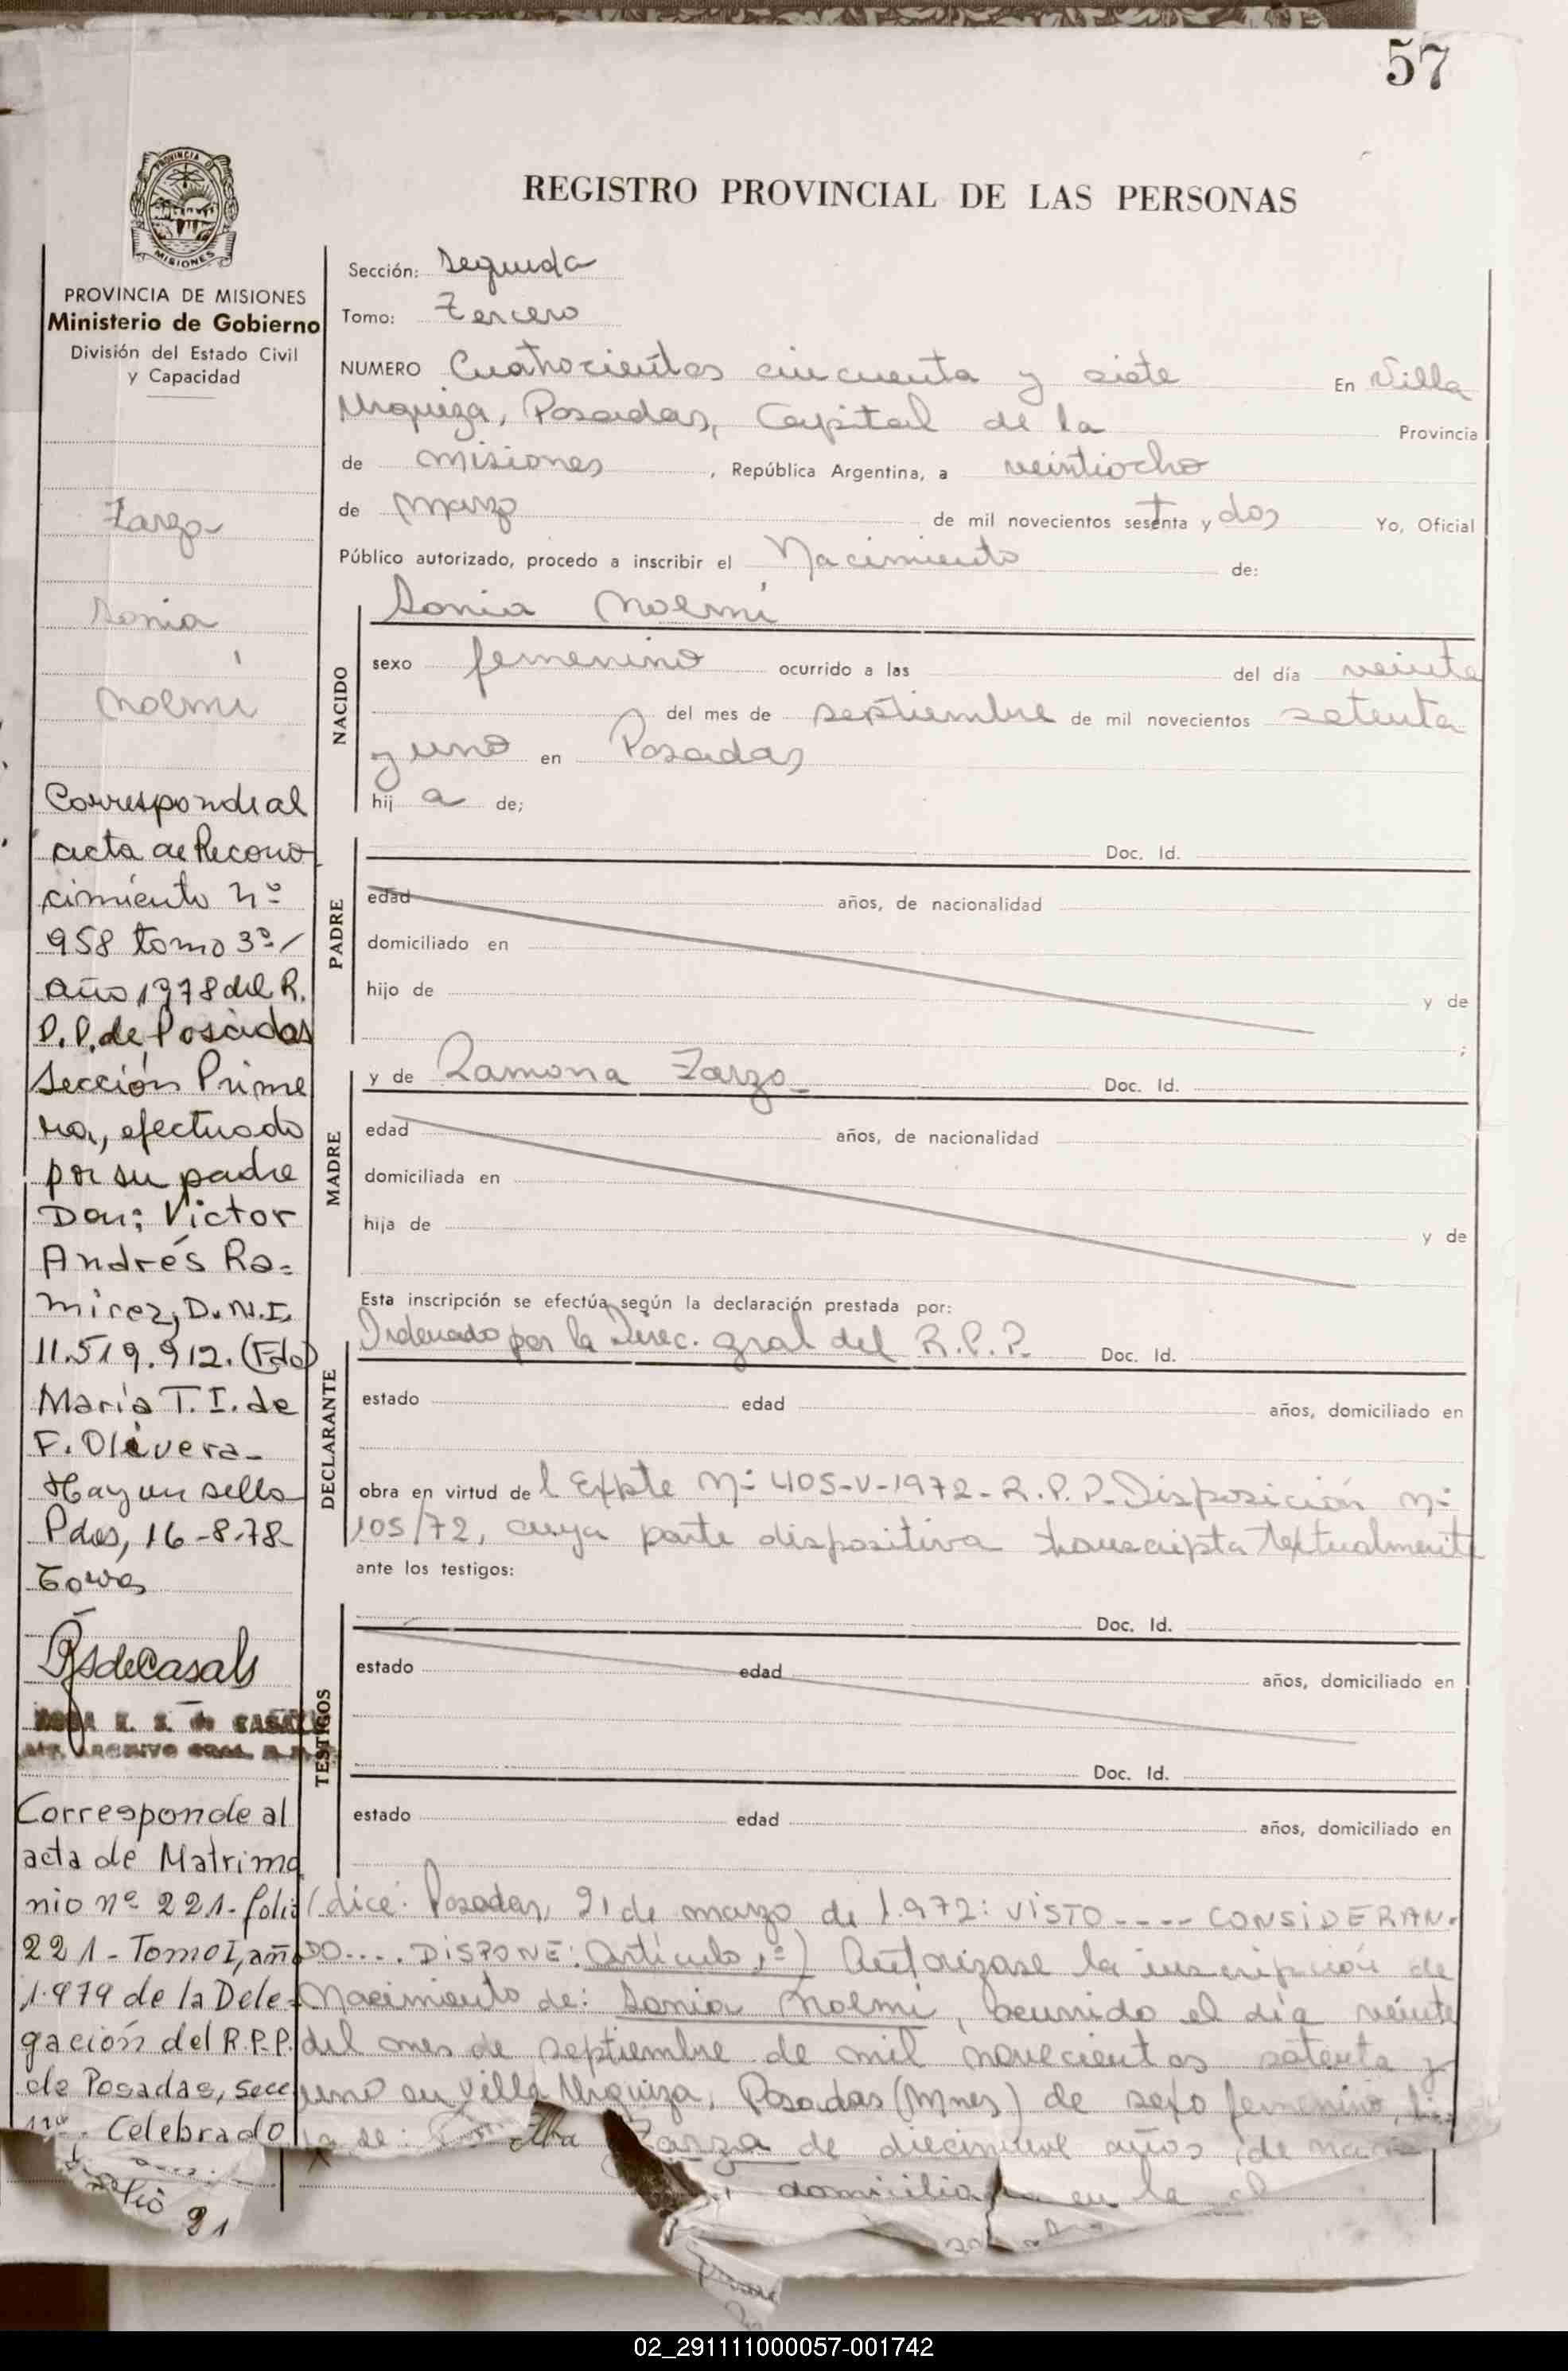 57
PROVINCIA DE
MISIONES
REGISTRO PROVINCIAL DE LAS PERSONAS
PROVINCIA DE MISIONES
Ministerio de Gobierno
División del Estado Civil
y Capacidad
Zarza
Sonia
Noemí
Corresponde al
acta de Recono
cimiento nº
958 tomo 3º/
año 1978 del R.
P.P. de Posadas
Sección Prime
ra, efectuado
por su padre
Don: Victor
Andrés Ra=
mirez, D.N.I.
11.519.912. (Fdo)
María T. I. de
F. Olivera-
Hay un sello
Pdas, 16-8-78
RsdeCasals
E. S. de CASALS
ARCHIVO GRAL. R.P.
Corresponde al
acta de Matrimo
nio nº 221- folio
221- Tomo I, año
1.979 de la Dele=
gación del R.P.P.
de Posadas, secc
1ra. Celebrado
21
Sección: Segunda
Tomo: Tercero
NUMERO Cuatrocientos cincuenta y siete En Villa
Urquiza, Posadas, Capital de la Provincia
de Misiones, República Argentina, a veintiocho
de Marzo de mil novecientos setenta y dos Yo, Oficial
Público autorizado, procedo a inscribir el Nacimiento de:
NACIDO
Sonia Noemí
sexo femenino ocurrido a las del día veinte
del mes de septiembre de mil novecientos setenta
y uno en Posadas
hij a de;
PADRE
Doc. Id.
edad años, de nacionalidad
domiciliado en
hijo de y de
;
MADRE
y de Ramona Zarza- Doc. Id.
edad años, de nacionalidad
domiciliada en
hija de y de
Esta inscripción se efectúa según la declaración prestada por:
DECLARANTE
Ordenado por la Direc. gral del R.P.P. Doc. Id.
estado edad años, domiciliado en
obra en virtud de l Expte Nº 405-V-1972- R.P.P- Disposición Nº
105/72, cuya parte dispositiva transcipta textualmente
ante los testigos:
TESTIGOS
Doc. Id.
estado edad años, domiciliado en
Doc. Id.
estado edad años, domiciliado en
dice: Posadas, 21 de marzo de 1.972: VISTO---- CONSIDERAN-
DO.... DISPONE: Artículo 1º) Autorizase la inscripción de
Nacimiento de: Sonia Noemí, ocurrido el día veinte
del mes de septiembre de mil novecientos setenta y
uno en Villa Urquiza, Posadas (Mnes) de sexo femenino, hi-
ja de: Zarza de diecinueve años, de
domiciliada en la
02_291111000057-001742